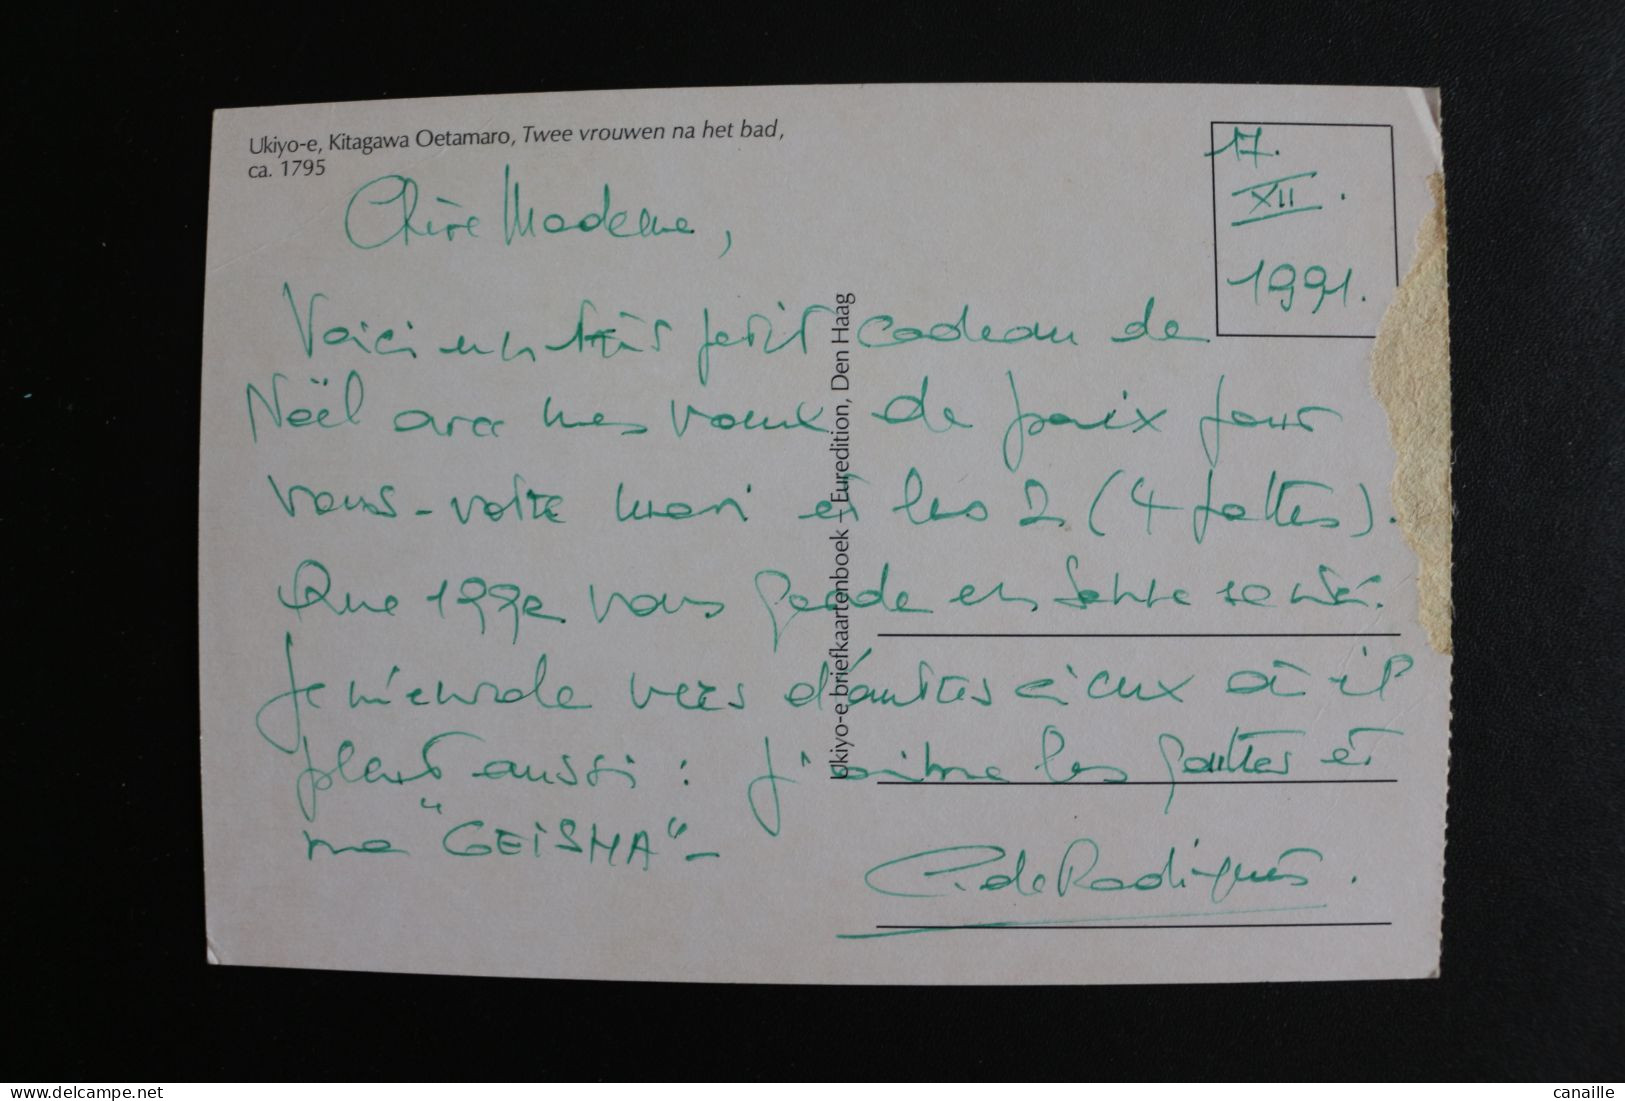 Ukiyo-e, Kitagawa Oetamaro, Twee vrouwen na het bad,
ca. 1795
17.
XII.
1991.
Chère Madame,
Voici un très petit cadeau de
Noël avec mes vœux de paix pour
vous-votre mari et les 2 (4 pattes).
Que 1992 vous garde en bonne santé.
Je m'envole vers d'autres cieux où il
pleut aussi : j'aime les gouttes et
ma "GEISHA" -
C. de Radiguès.
Ukiyo-e briefkaartenboek – Euredition, Den Haag
canaille